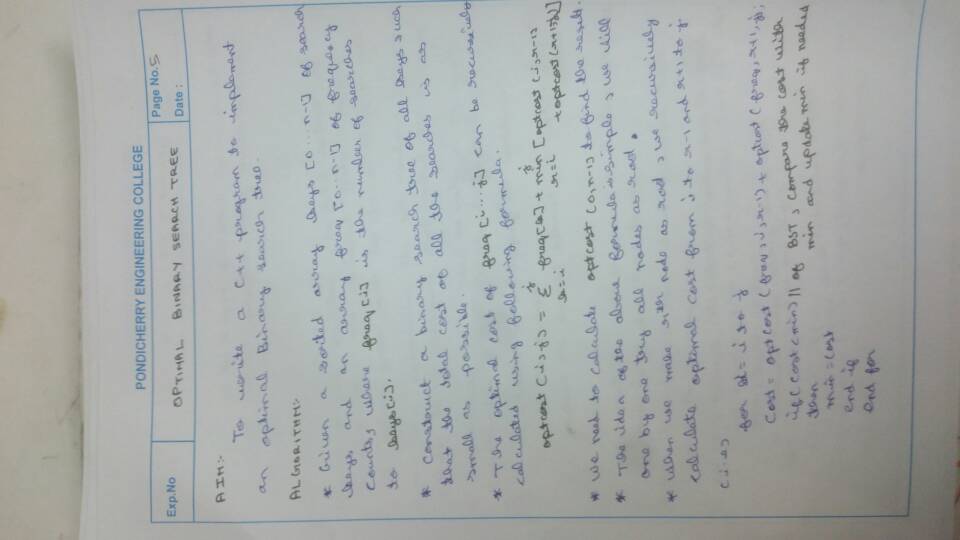 PONDICHERRY ENGINEERING COLLEGE
Exp.No
OPTIMAL BINARY SEARCH TREE
Page No. 5
Date :
AIM:-
To write a C++ program to implement
an optimal Binary search tree.
ALGORITHM:-
* Given a sorted array keys [0...n-1] of search
keys and an array freq [0..n-1] of frequency
counts, where freq [i] is the number of searches
to keys[i].
* Construct a binary search tree of all keys such
that the total cost of all the searches is as
small as possible.
* The optimal cost of freq [i...j] can be recursively
calculated using following formula.
optcost (i,j) = Σ freq[k] + min [optcost (i,r-1)
k=i r=i + optcost(r+1,j)]
* We need to calculate optcost (0,n-1) to find the result.
* The idea of the above formula is simple, we will
one by one try all nodes as root.
* When we make rth node as root, we recursively
calculate optimal cost from i to r-1 and r+1 to j
(i.e)
for r = i to j
Cost = optcost (freq, i, r-1) + optcost (freq, r+1, j);
if (cost < min) || of BST, Compare the cost with
then min and update min if needed
min = cost
end if
end for